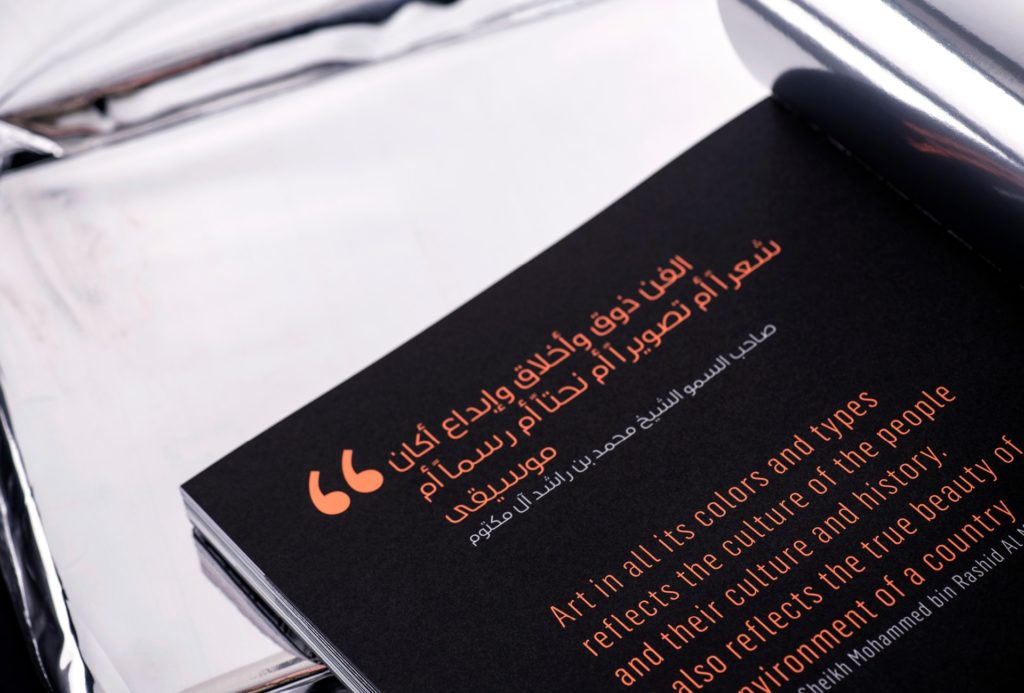 “
الفن ذوق وأخلاق وإبداع أكان
شعراً أم تصويراً أم نحتاً أم رسماً أم
موسيقى
صاحب السمو الشيخ محمد بن راشد آل مكتوم
Art in all its colors and types
reflects the culture of the people
and their culture and history,
also reflects the true beauty of
environment of a country
Sheikh Mohammed bin Rashid Al